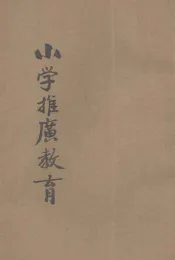 小学推廣教育